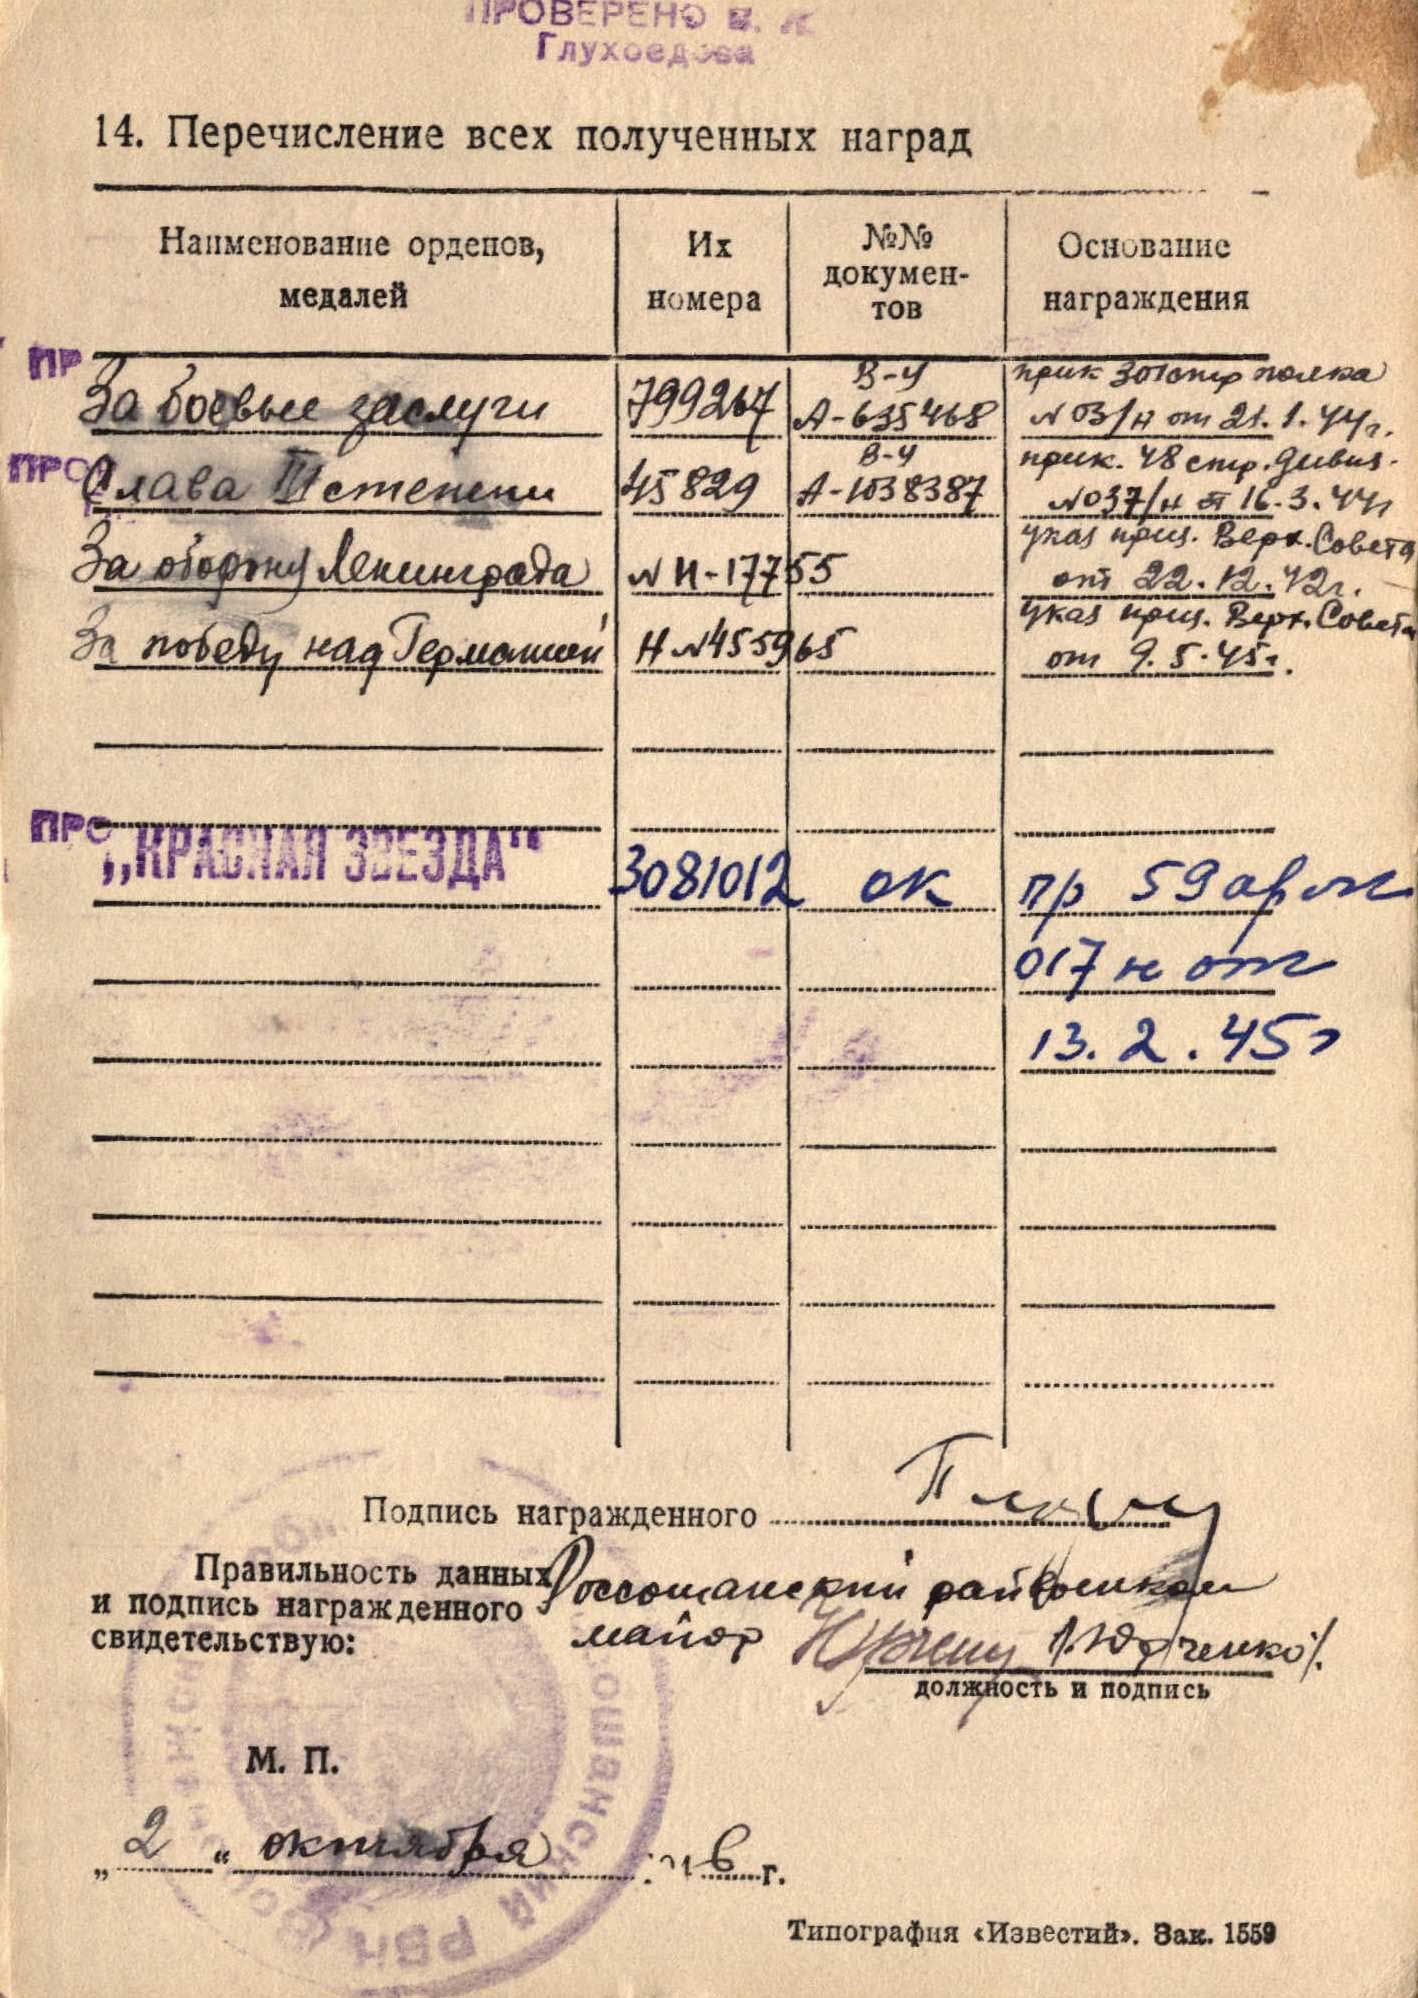 ПРОВЕРЕНО
Глухоедова
14. Перечисление всех полученных наград
Наименование орденов, медалей
Их номера
№№ документов
Основание награждения
ПР За боевые заслуги 799267 В-Ч А-635468 прик 301 стр полка №03/н от 21.1.44г.
ПРО Слава III степени 45829 В-Ч А-1038387 прик. 48 стр. дивиз. №037/н от 16.3.44г
За оборону Ленинграда №И-17755 указ през. Верх. Совета от 22.12.42г.
За победу над Германией Н №455965 указ през. Верх. Совета от 9.5.45г.
ПРО „КРАСНАЯ ЗВЕЗДА" 3081012 ок пр 59 арм
017 н от
13.2.45г
Подпись награжденного
Правильность данных Россошанский райвоенком
и подпись награжденного
свидетельствую: майор /Юрченко/.
должность и подпись
М. П.
„2" октября 6 г.
ОШАНСКИЙ РВК
Типография «Известий». Зак. 1559